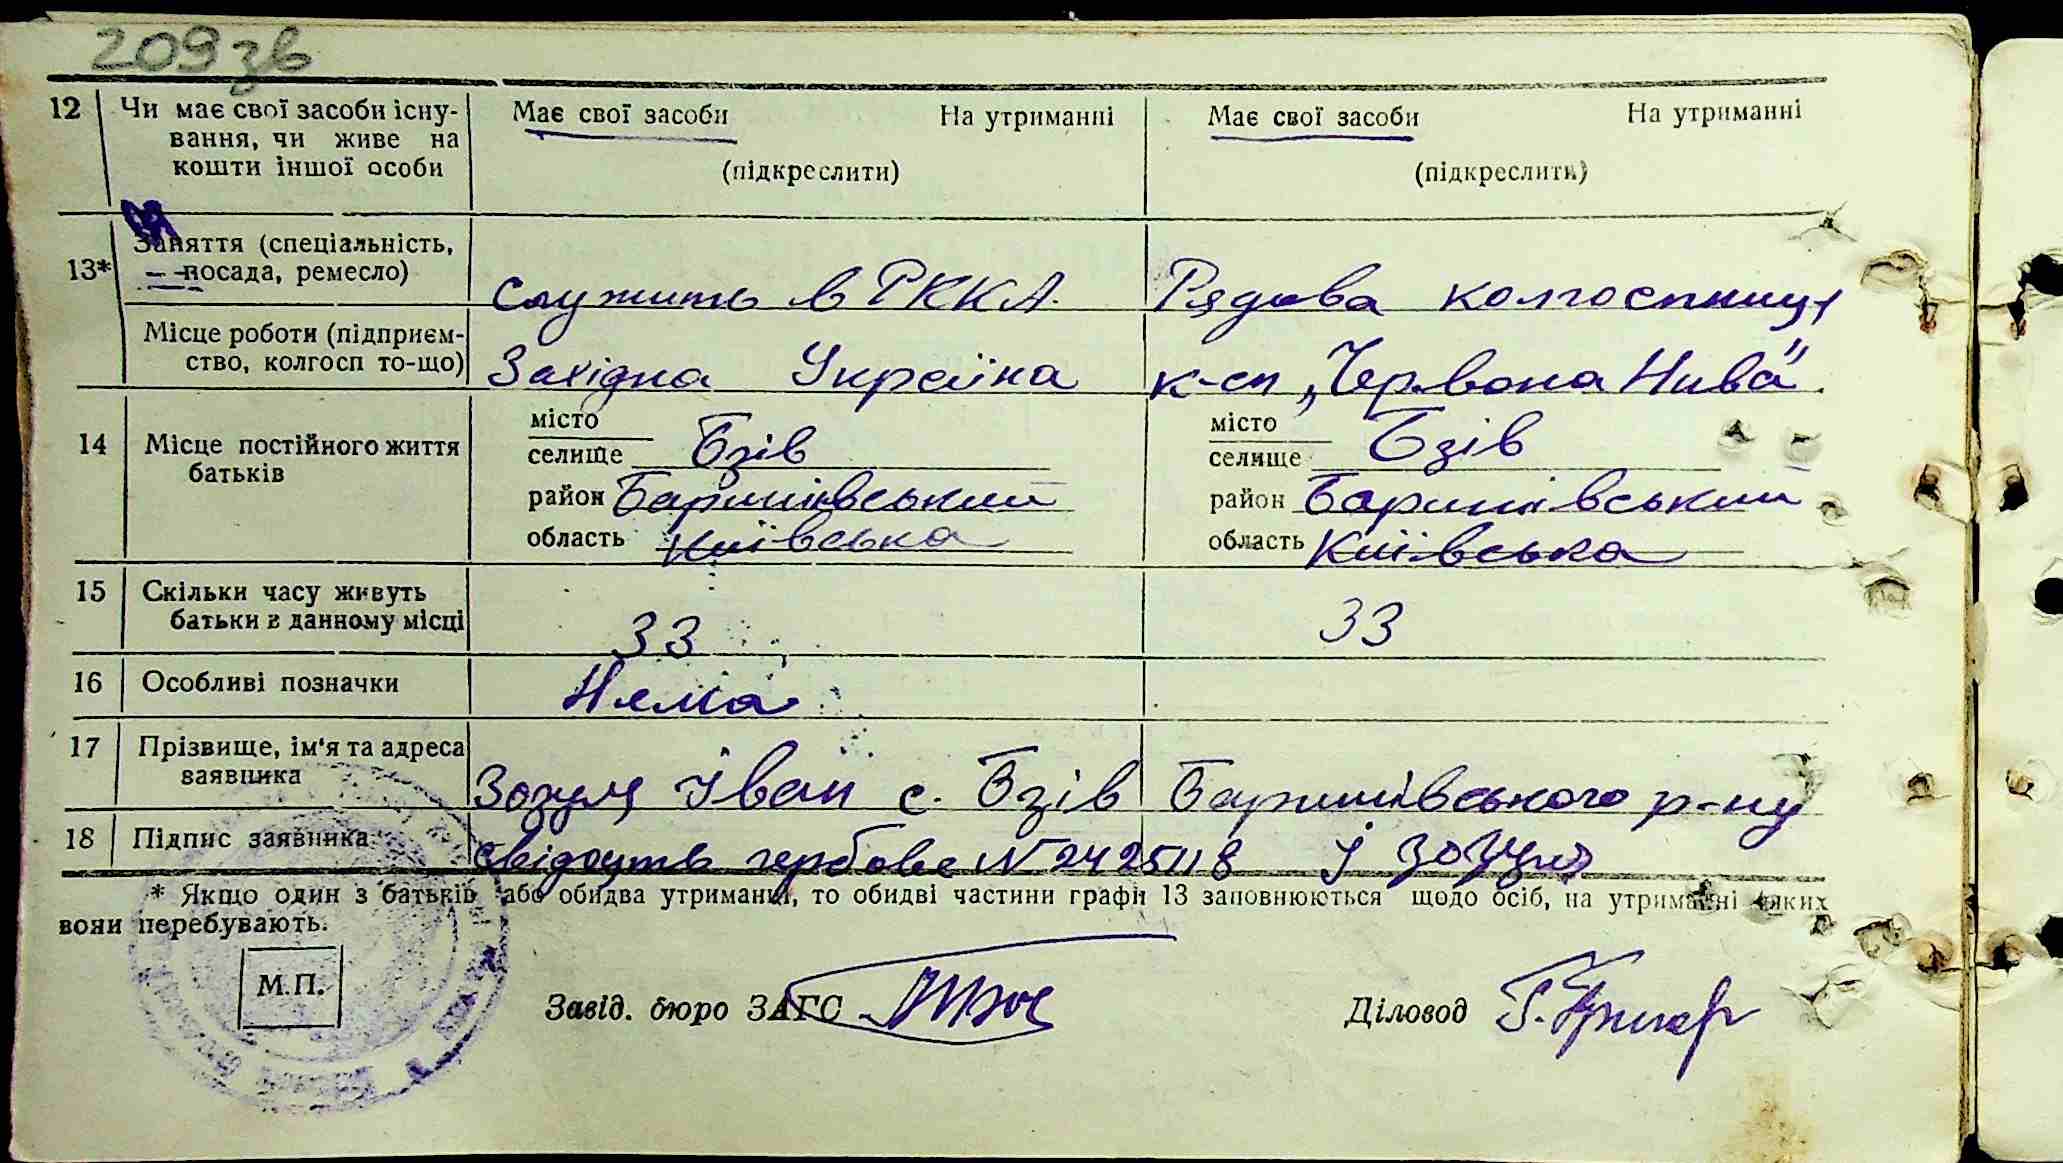 209 зв
12 Чи має свої засоби існу- Має свої засоби На утриманні Має свої засоби На утриманні
вання, чи живе на
кошти іншої особи (підкреслити) (підкреслити)
13* Заняття (спеціальність,
посада, ремесло) Служить в РККА. Рядова колгоспниця
Місце роботи (підприєм-
ство, колгосп то-що) Західна Україна к-сп „Червона Нива"
14 Місце постійного життя місто місто
батьків селище Бзів селище Бзів
район Баришівський район Баришівський
область Київська область Київська
15 Скільки часу живуть
батьки в данному місці 33 33
16 Особливі позначки Нема
17 Прізвище, ім'я та адреса
заявника Зозуля Іван с. Бзів Баришівського р-ну
18 Підпис заявника свідоцтв гербове N 2425118 І Зозуля
* Якщо один з батьків або обидва утриманці, то обидві частини графи 13 заповнюються щодо осіб, на утриманні яких
вони перебувають.
М.П.
Завід. бюро ЗАГС Діловод